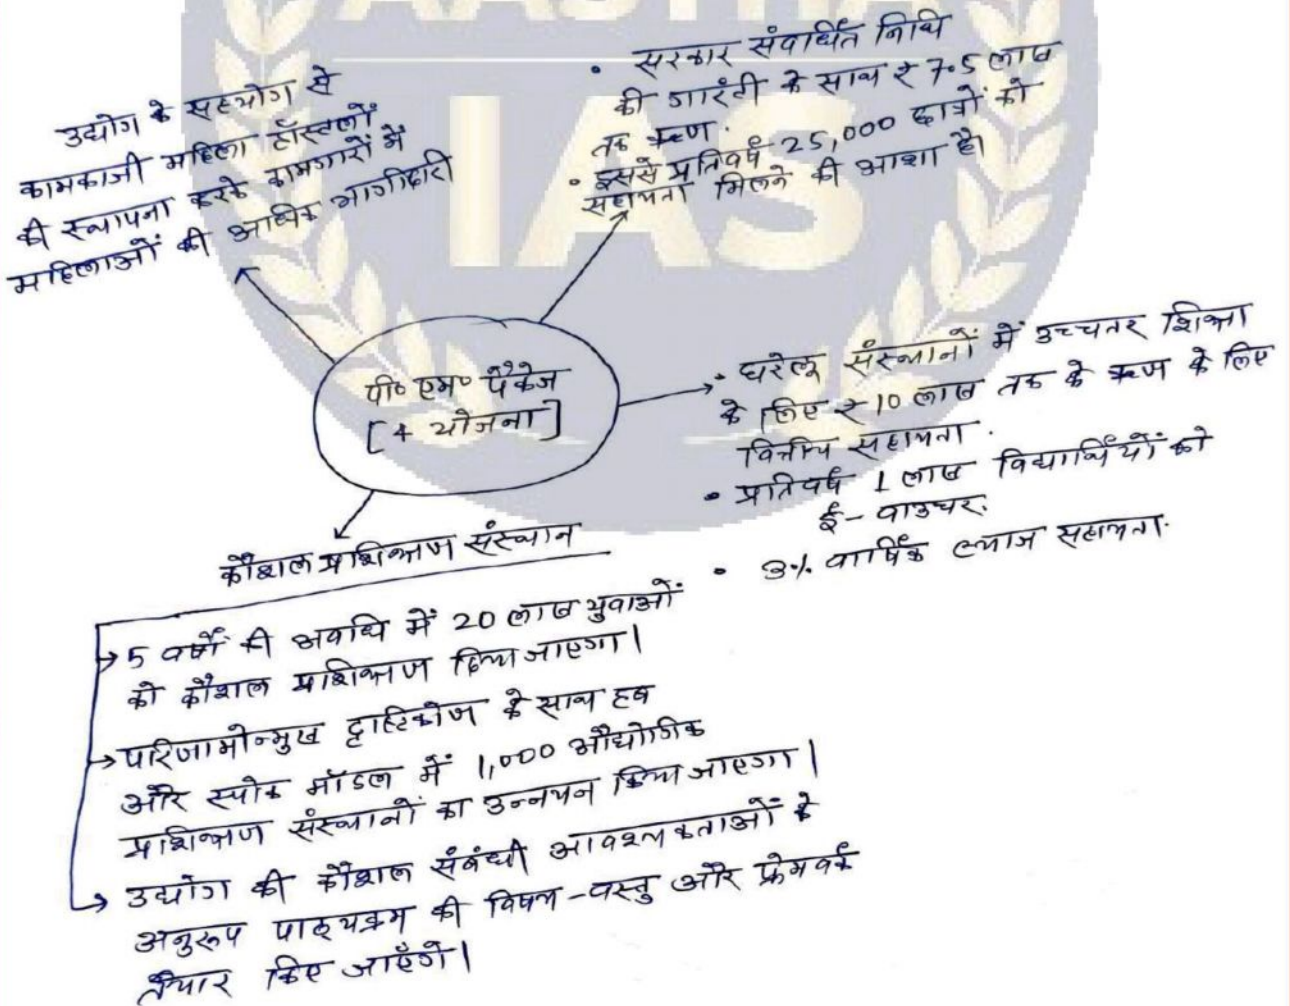 AASTHA
IAS
उद्योग के सहयोग से
कामकाजी महिला हॉस्टलों
की स्थापना करके कामगारों में
महिलाओं की आर्थिक भागीदारी
• सरकार संवर्धित निधि
की गारंटी के साथ ₹ 7.5 लाख
तक ऋण.
• इससे प्रतिवर्ष 25,000 छात्रों को
सहायता मिलने की आशा है।
पी० एम० पैकेज
[4 योजना]
• घरेलू संस्थानों में उच्चतर शिक्षा
के लिए ₹ 10 लाख तक के ऋण के लिए
वित्तीय सहायता.
• प्रतिवर्ष 1 लाख विद्यार्थियों को
ई- वाउचर.
• 3% वार्षिक ब्याज सहायता.
कौशल प्रशिक्षण संस्थान
→ 5 वर्षों की अवधि में 20 लाख युवाओं
को कौशल प्रशिक्षण दिया जाएगा।
→ परिणामोन्मुख दृष्टिकोण के साथ हब
और स्पोक मॉडल में 1,000 औद्योगिक
प्रशिक्षण संस्थानों का उन्नयन किया जाएगा।
→ उद्योग की कौशल संबंधी आवश्यकताओं के
अनुरूप पाठ्यक्रम की विषय-वस्तु और फ्रेमवर्क
तैयार किए जाएँगे।